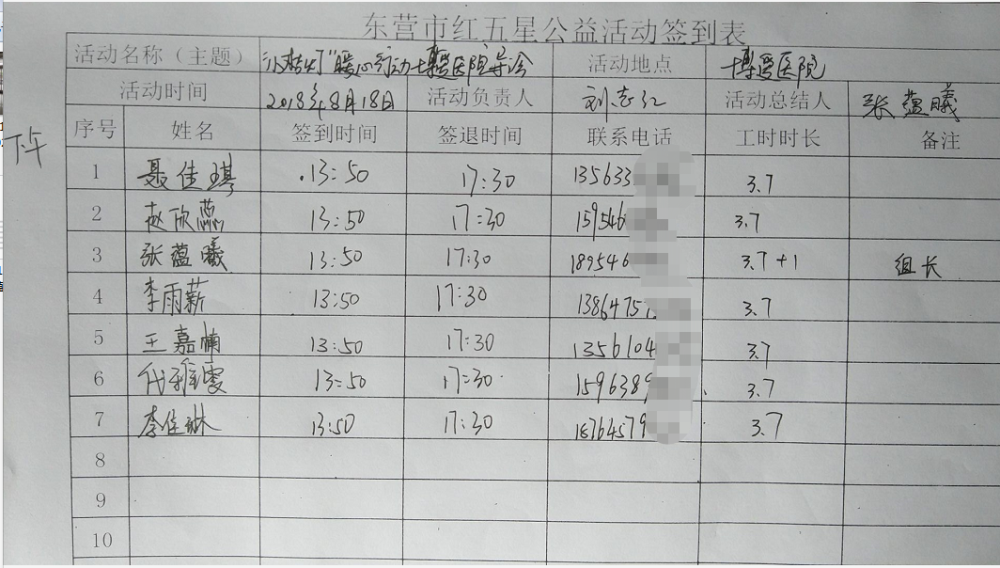 东营市红五星公益活动签到表
活动名称（主题） 小桔灯"暖心行动博爱医院导诊 活动地点 博爱医院
活动时间 2018年8月18日 活动负责人 刘志红 活动总结人 张蕴曦
下午
序号 姓名 签到时间 签退时间 联系电话 工时时长 备注
1 聂佳琪 13:50 17:30 135633 3.7
2 赵欣蕊 13:50 17:30 159546 3.7
3 张蕴曦 13:50 17:30 189546 3.7+1 组长
4 李雨薪 13:50 17:30 1386475 3.7
5 王嘉楠 13:50 17:30 1356104 3.7
6 代雅雯 13:50 17:30 1596389 3.7
7 李佳琳 13:50 17:30 18764579 3.7
8
9
10